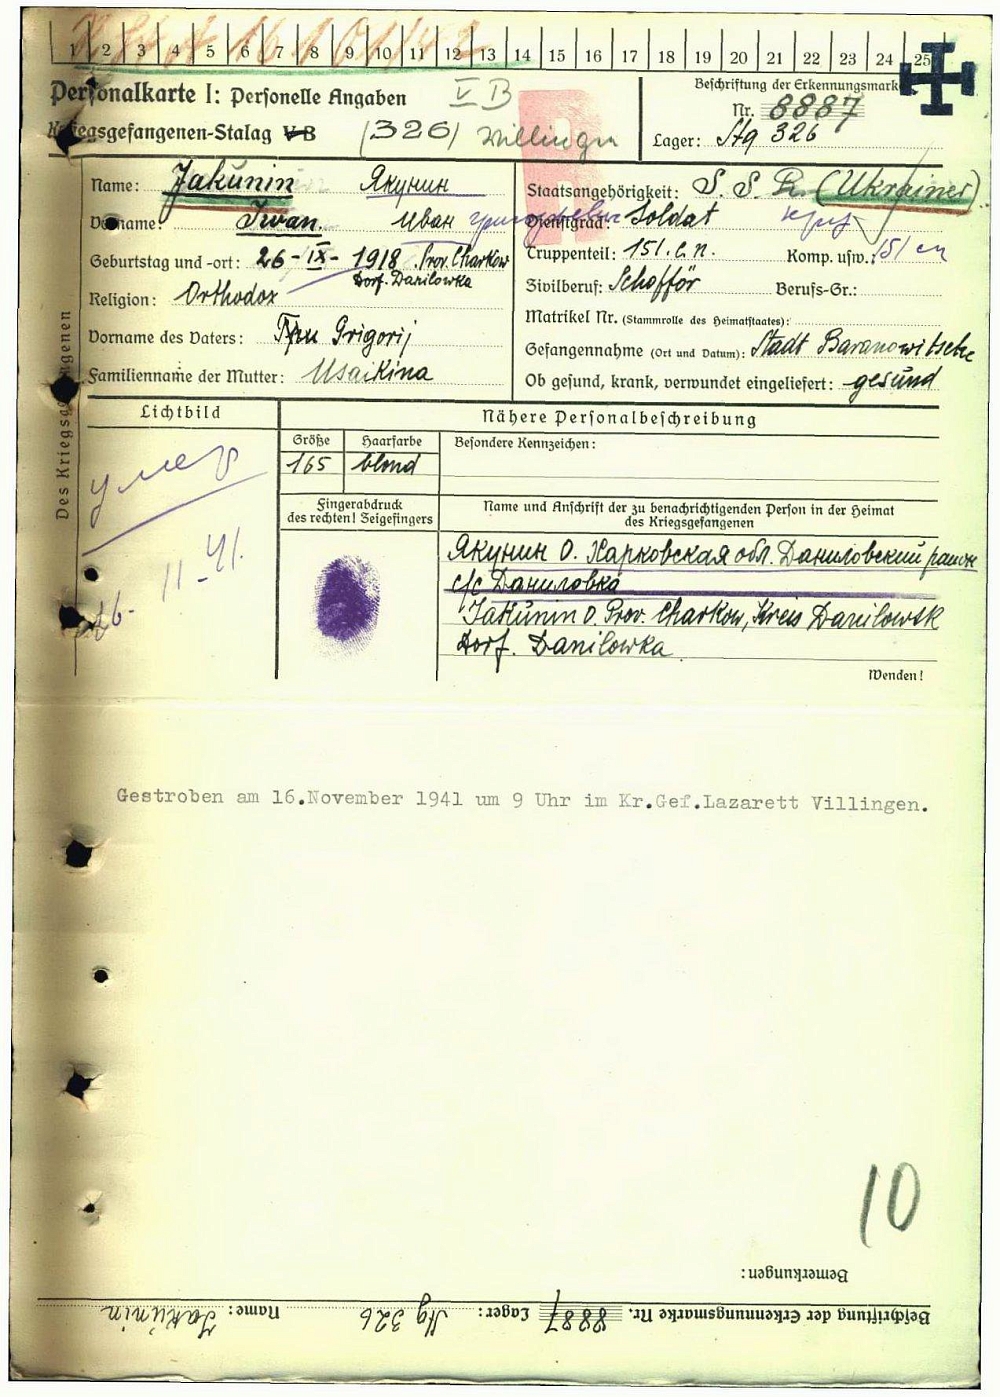 1 2 3 4 5 6 7 8 9 10 11 12 13 14 15 16 17 18 19 20 21 22 23 24 25
Personalkarte I: Personelle Angaben V B
Beschriftung der Erkennungsmarke
Nr. 8887
Kriegsgefangenen-Stalag V B (326) Villingen
Lager: Stg 326
Des Kriegsgefangenen
Name: Jakunin Якунин
Staatsangehörigkeit: S. S. R. (Ukrainer)
Vorname: Iwan. Иван Григорьевич
Dienstgrad: Soldat
Geburtstag und -ort: 26-IX-1918 Prov. Charkow
Dorf. Danilowka
Truppenteil: 151. Komp. usw.: 151
Religion: Orthodox
Zivilberuf: Schofför Berufs-Gr.:
Matrikel Nr. (Stammrolle des Heimatstaates):
Vorname des Vaters: Grigorij
Gefangennahme (Ort und Datum): Stadt Baranowitsche
Familienname der Mutter: Usaikina
Ob gesund, krank, verwundet eingeliefert: gesund
Lichtbild
Nähere Personalbeschreibung
Größe Haarfarbe Besondere Kennzeichen:
165 blond
умер
11-41.
Fingerabdruck
des rechten! Zeigefingers
Name und Anschrift der zu benachrichtigenden Person in der Heimat
des Kriegsgefangenen
Якунин О. Харковская обл. Даниловский район
с/с Даниловка
Jakunin O. Prov. Charkow, Kreis Danilowsk
Dorf. Danilowka
Wenden!
Gestroben am 16.November 1941 um 9 Uhr im Kr.Gef.Lazarett Villingen.
10
Bemerkungen:
Beschriftung der Erkennungsmarke Nr. 8887 Lager: Stg 326 Name: Jakunin